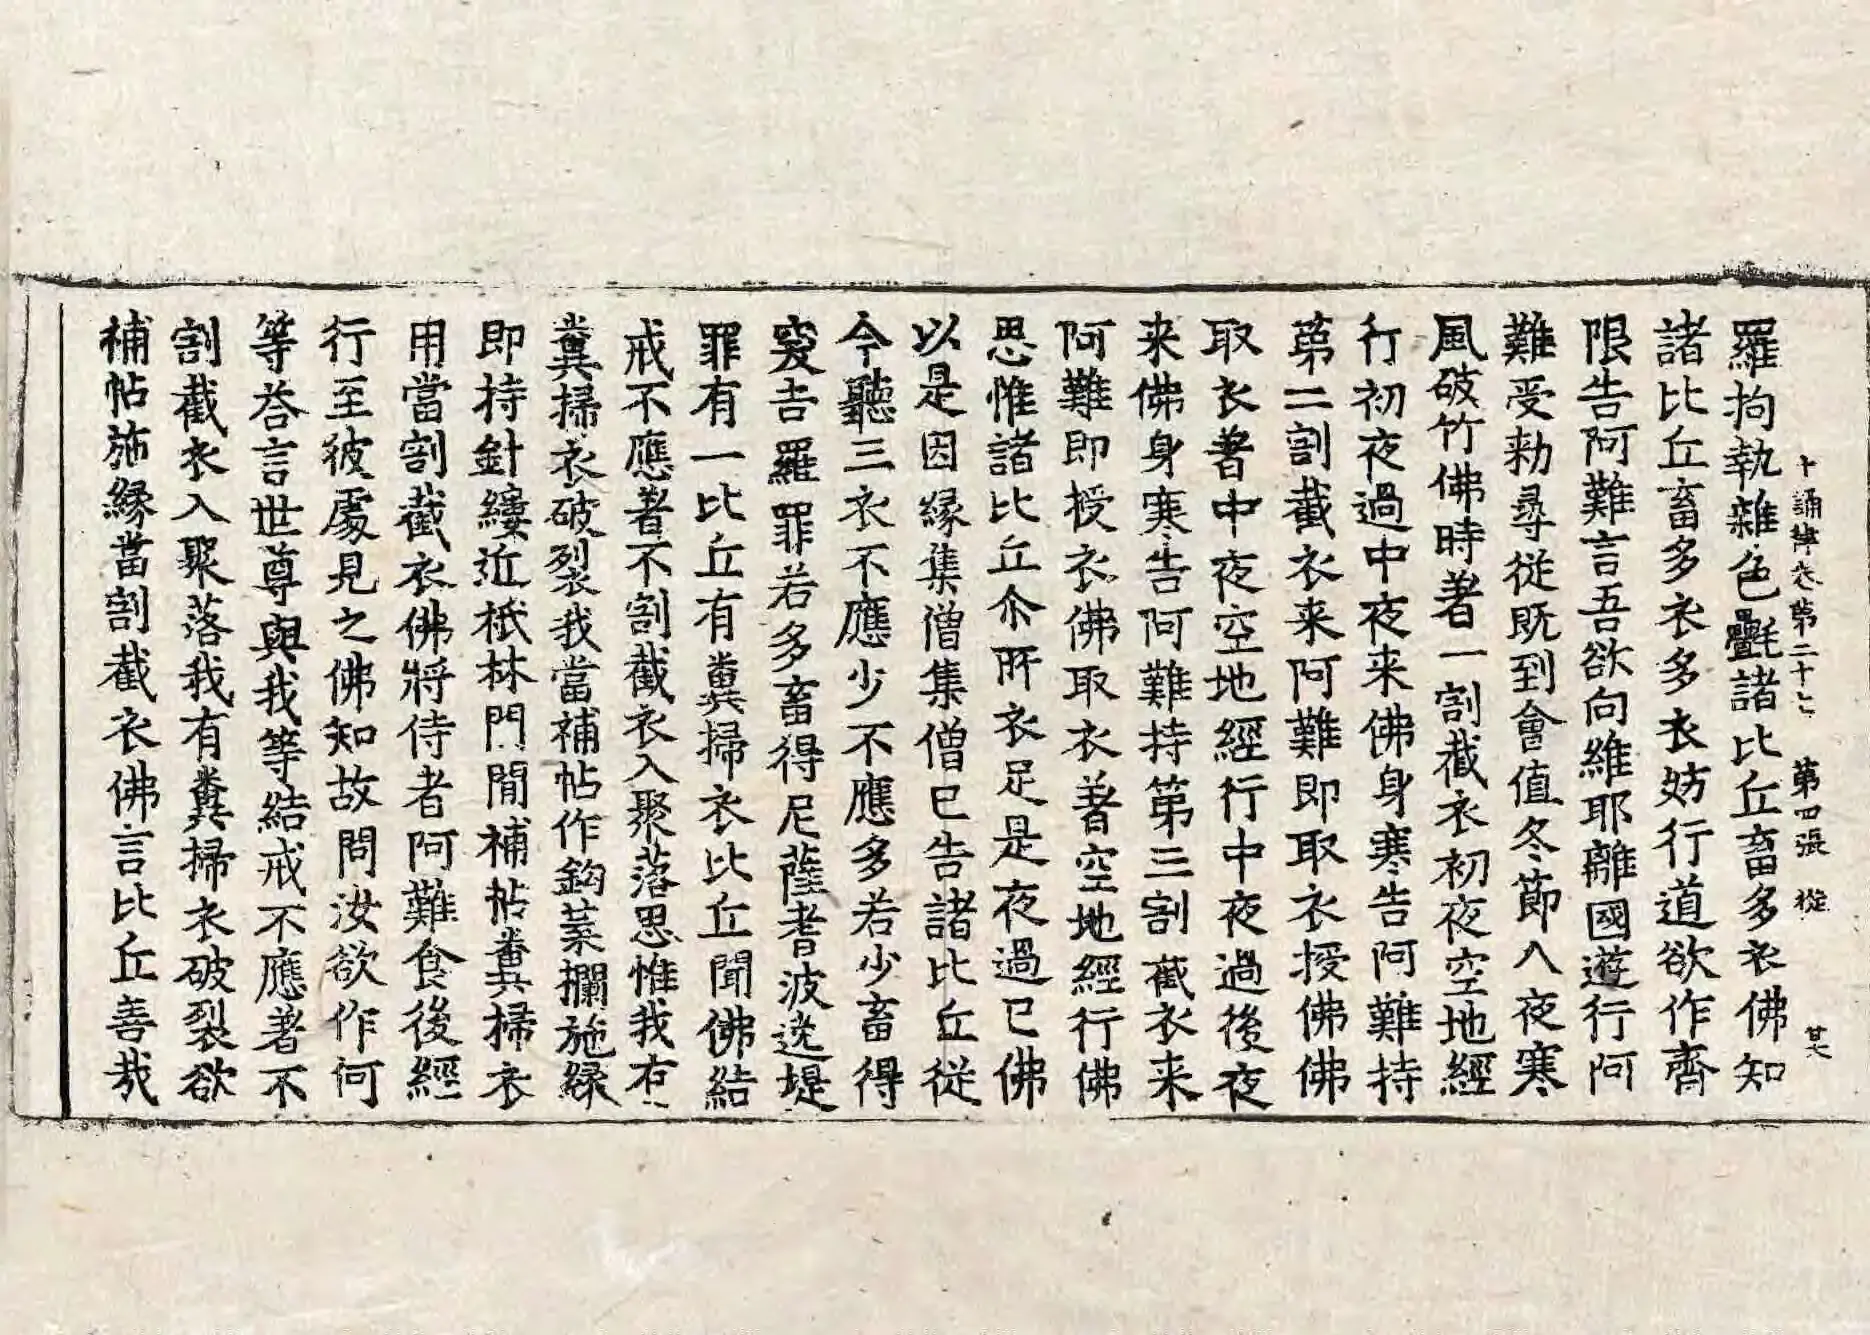 十誦律卷第二十七　第四張　從
羅拘執雜色氎諸比丘畜多衣佛知
諸比丘畜多衣多衣妨行道欲作齊
限告阿難言吾欲向維耶離國遊行阿
難受勑尋從既到會值冬節八夜寒
風破竹佛時著一割截衣初夜空地經
行初夜過中夜来佛身寒告阿難持
第二割截衣来阿難即取衣授佛佛
取衣著中夜空地經行中夜過後夜
来佛身寒告阿難持第三割截衣来
阿難即授衣佛取衣著空地經行佛
思惟諸比丘尒所衣足是夜過已佛
以是因緣集僧集僧已告諸比丘從
今聽三衣不應少不應多若少畜得
突吉羅罪若多畜得尼薩耆波逸堤
罪有一比丘有糞掃衣比丘聞佛結
戒不應著不割截衣入聚落思惟我有
糞掃衣破裂我當補帖作鈎葉欄施緣
即持針縷近祇林門間補帖糞掃衣
用當割截衣佛將侍者阿難食後經
行至彼處見之佛知故問汝欲作何
等荅言世尊與我等結戒不應著不
割截衣入聚落我有糞掃衣破裂欲
補帖施緣當割截衣佛言比丘善㢤